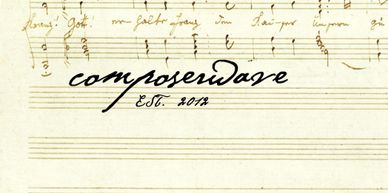 Gott! erhalte Franz den Kaiser Unsern
composerdave
EST. 2012